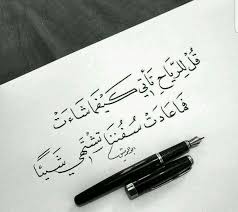 قُلْ لِلرِّيَاحِ تَأْتِي كَيْفَمَا شَاءَتْ
فَمَا عَادَتْ سُفُنُنَا تَشْتَهِي شَيْئًا